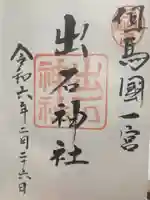 但馬國一宮
出石神社
令和六年二月二十六日